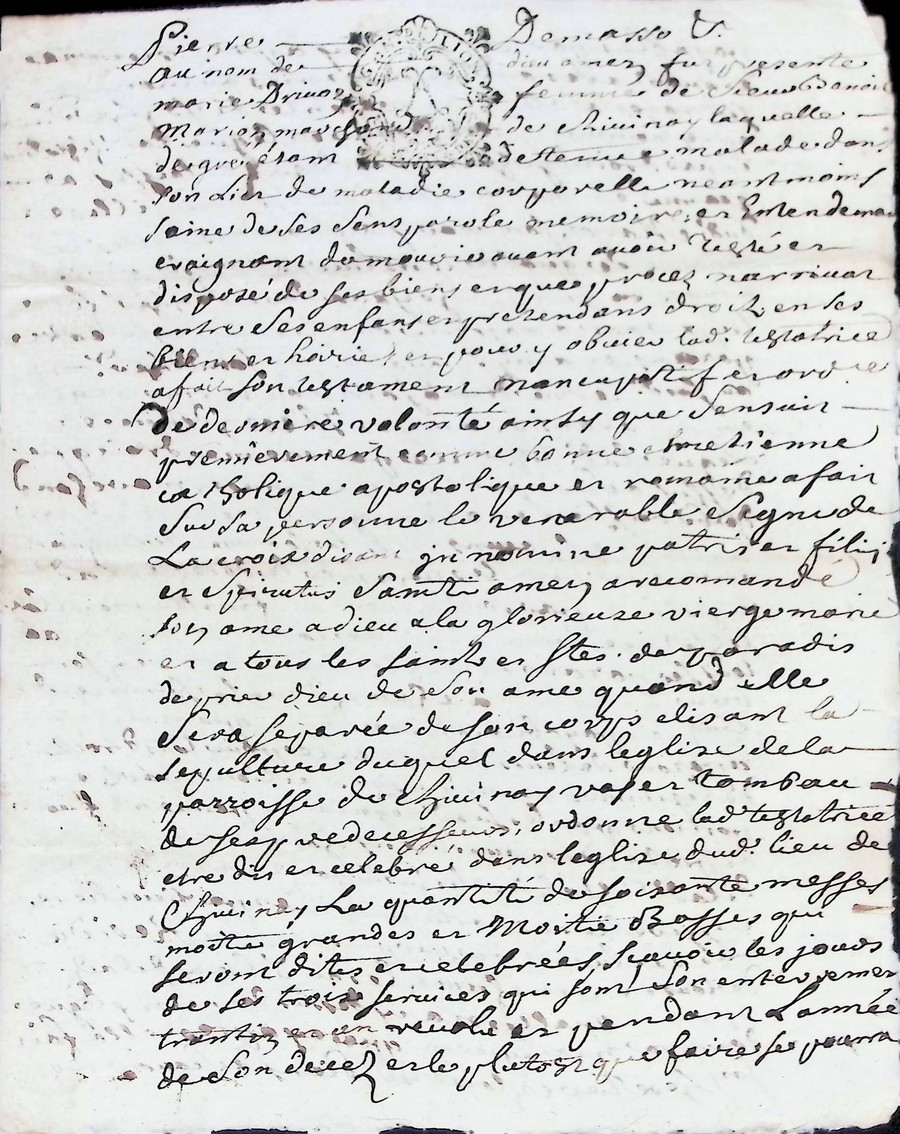 Pierre Demasso
au nom de dieu amen fut presente
marie Drivon femme de Sieur Benoit
Marion marchand de Chivinay laquelle
de gré étant detenue malade dans
son lict de maladie corporelle neantmoins
saine de ses sens parole memoire et Entendement
craignant de mourir avant avoir testé et
disposé de ses biens et que procez n'arrivat
entre ses enfans et pretendans droit en ses
biens et hoirie et pour y obvier lad. testatrice
a fait son testament nuncupatif et ordce
de derniere volonté ainsy que sensuit
premierement comme bonne chretienne
catholique apostolique et romaine a fait
sur sa personne le venerable Signe de
La croix disant in nomine patris et filii
et Spiritus Sancti amen a recomandé
son ame a dieu a la glorieuze vierge marie
et a tous les saints et Stes. de paradis
de prier dieu de son ame quand elle
sera separée de son corps elisant la
sepulture duquel dans leglize de la
parroisse de Chivinay vas et tombau
de ses predecesseurs, ordonne lad testatrice
etre dit et celebré dans leglize dud. lieu de
Chivinay La quantité de soixante messes
moitié grandes et Moitié Basses qui
seront dites et celebrées scavoir les jours
de ses trois services qui sont son enterrement
trantin et an revolu et pendant L'année
de Son decez et le plutost que faire se pourra